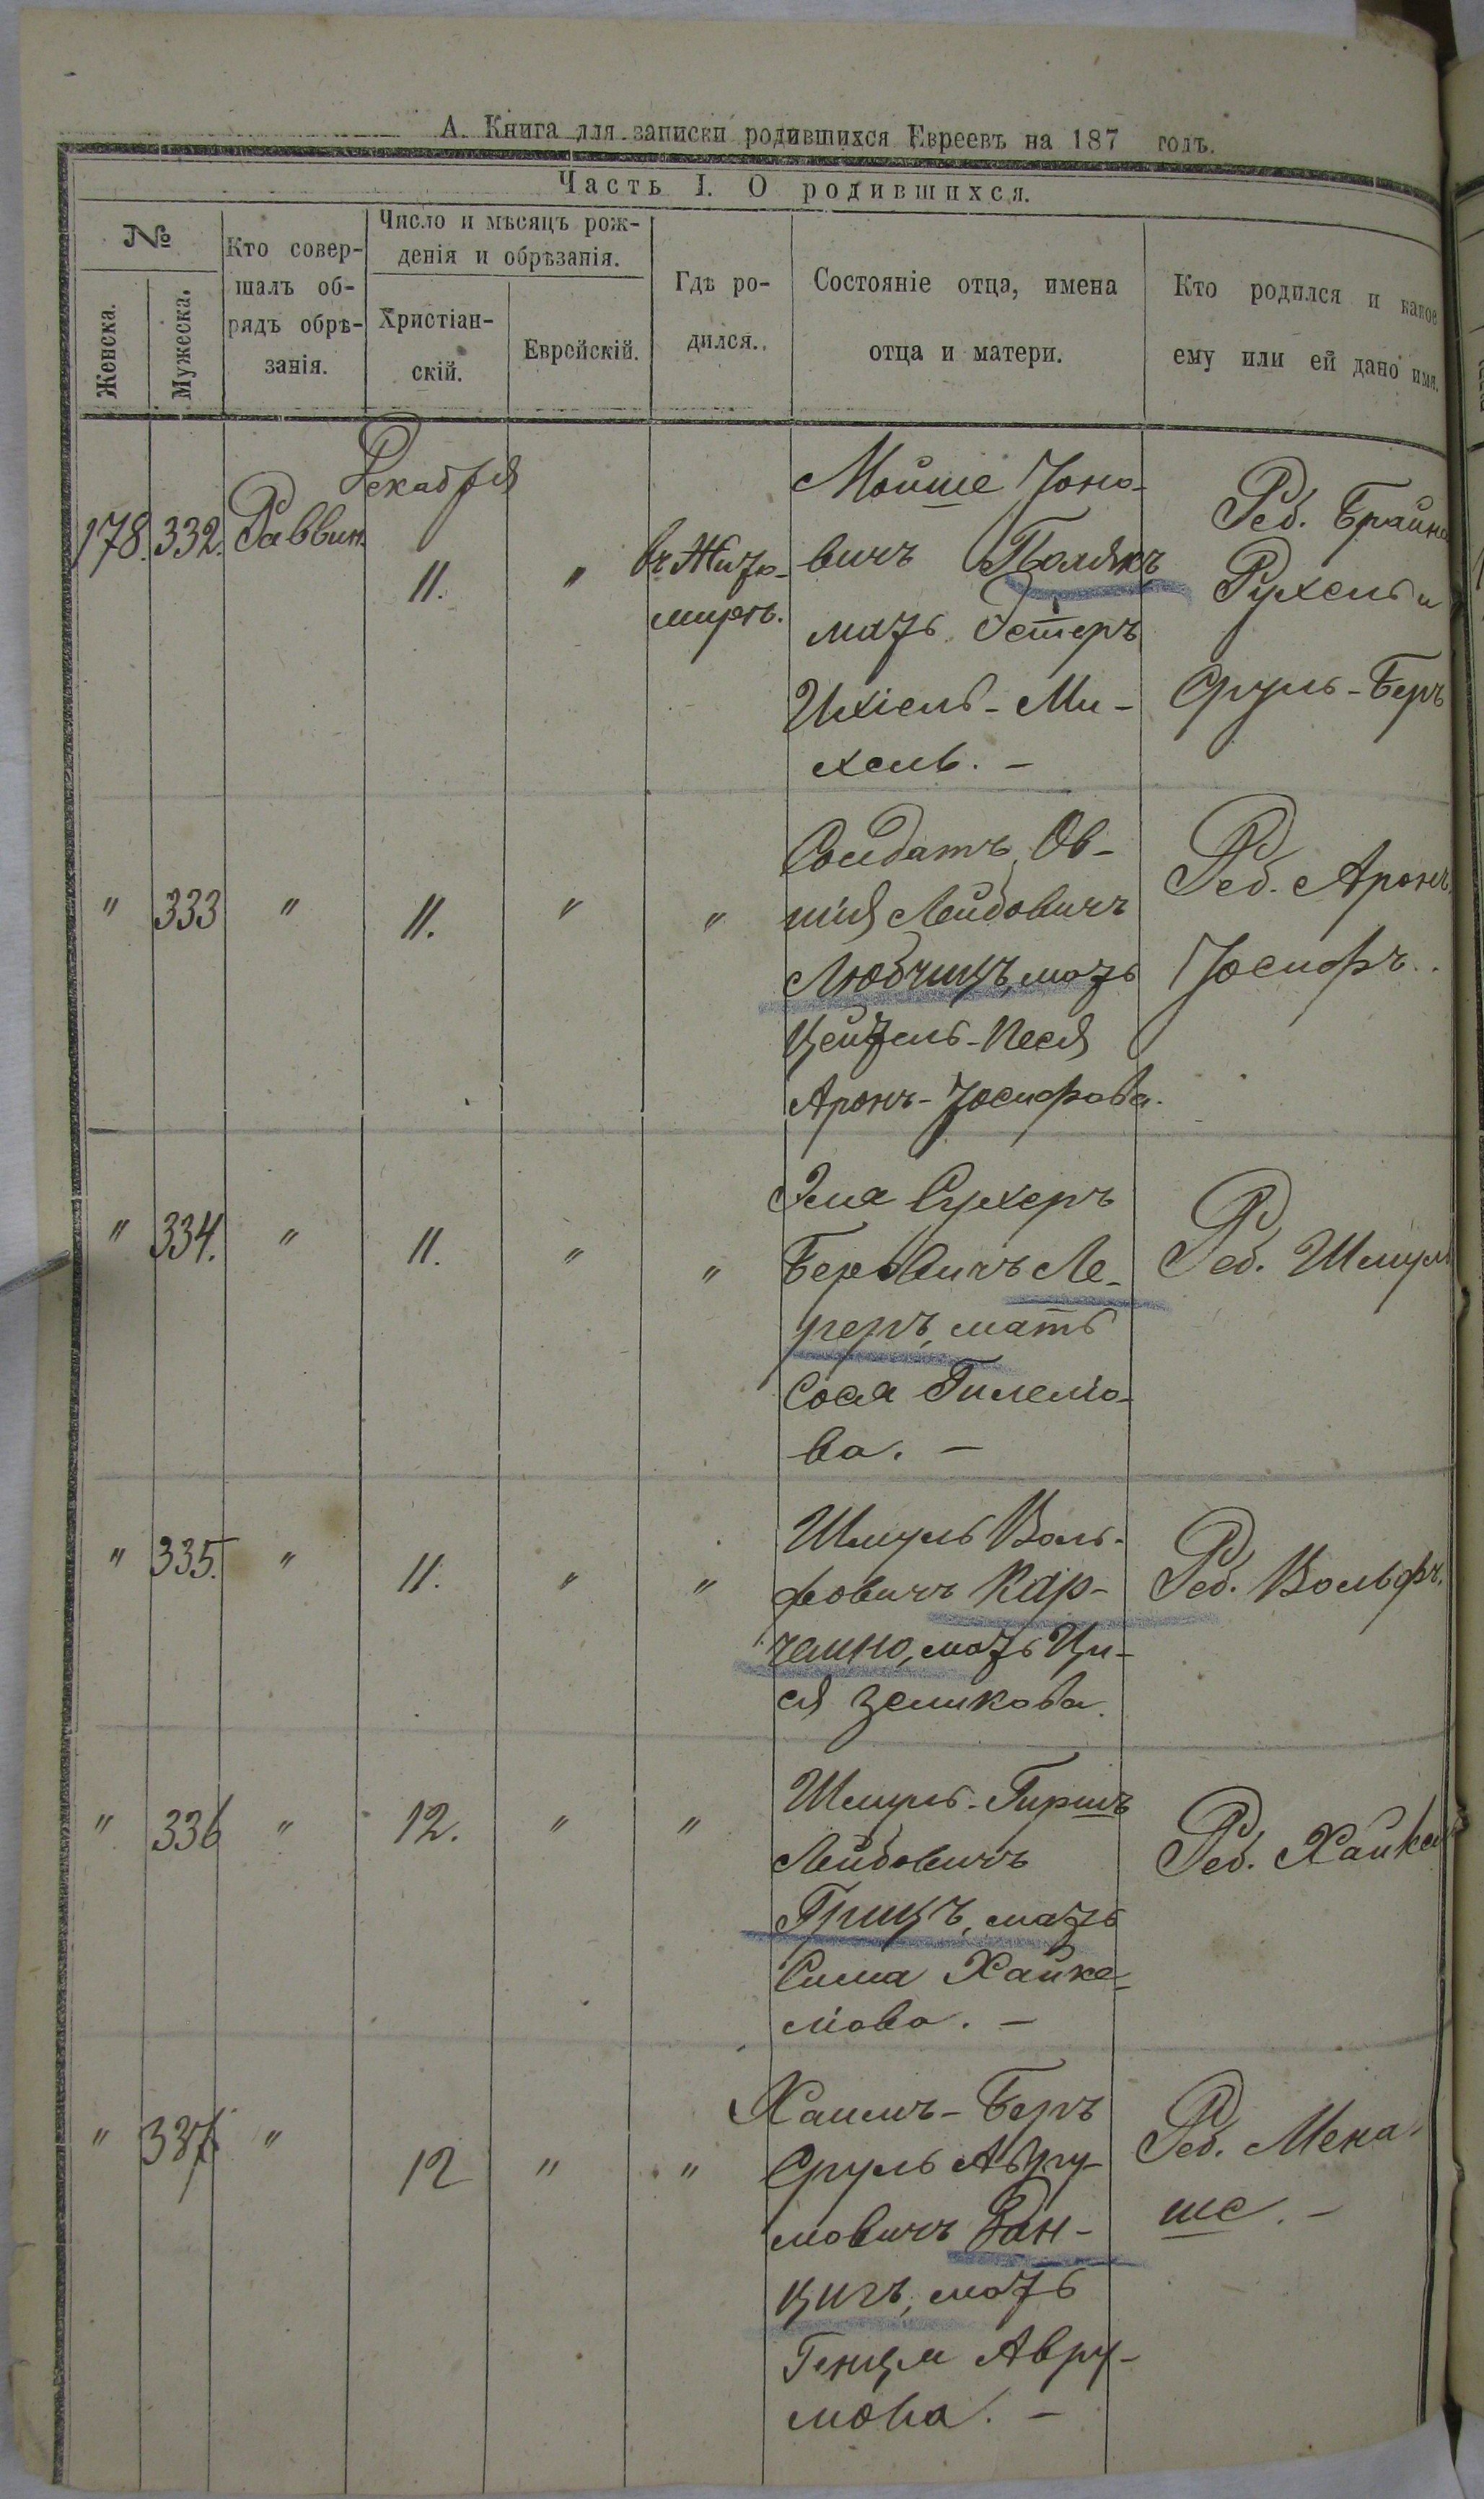 А. Книга для записки родившихся Евреевъ на 187 годъ.
Часть I. О родившихся.
№
Женска.
Мужеска.
Кто совер-
шалъ об-
рядъ обрѣ-
занія.
Число и мѣсяцъ рож-
денія и обрѣзанія.
Христіан-
скій.
Еврейскій.
Гдѣ ро-
дился.
Состояніе отца, имена
отца и матери.
Кто родился и какое
ему или ей дано имя.
Декабря
178. 332. Раввин. 11. " въ Жито-
миръ.
Мойше Іоно-
вичъ Полякъ
мать Эстеръ
Ихіель-Ми-
хель. -
Реб. Брайна
Рухель и
Сруль-Беръ
" 333 " 11. " "
Солдатъ Ов-
шія Лейбовичъ
Любчицъ, мать
Цейтель-Песя
Аронъ-Іосифова.
Реб. Аронъ
Іосифъ.
" 334. " 11. " "
Эля Сухеръ
Беровичъ Ле-
реръ, мать
Сося Гилело-
ва. -
Реб. Шмуль
" 335. " 11. " "
Шмуль Воль-
фовичъ Кар-
чемно, мать Ци-
ся Зеликова.
Реб. Вольфъ.
" 336 " 12. " "
Шмуль-Гиршъ
Лейбовичъ
Грицъ, мать
Сима Хайке-
лова. -
Реб. Хайкель
" 337 " 12 " "
Хаимъ-Беръ
Сруль Авру-
мовичъ Дан-
цигъ, мать
Генцля Авру-
мова. -
Реб. Мена-
ше. -